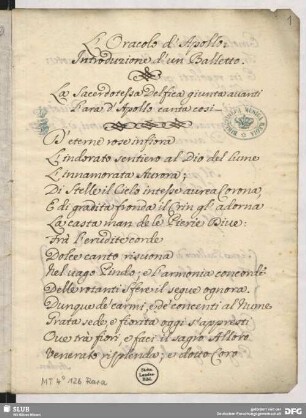 1
L'Oracolo d'Apollo.
Introduzione d'un Balletto.
La Sacerdotessa Delfica giunta avanti
l'ara d'Apollo canta così
D'eterne rose infiora
L'indorato sentiero al Dio del lume
L'innamorata Aurora;
Di Stelle il Cielo intesse aurea Corona,
E di gradita fronda il Crin gl'adorna
La casta man de le Pierie Dive:
Frà l'erudite corde
Dolce canto risuona
Nel vago Pindo; e l'armonia concorde
Delle rotanti Sfere il segue ognora.
Dunque de' carmi, e de' concenti al Nume
Grata sede, e fiorita oggi s'appresti
Ove trà fiori, e faci il sagro Alloro
Venerato risplenda; e dotto Coro
MT 4° 126 Rara
Sächs.
Landes-
Bibl.
SLUB
Wir führen Wissen.
DFG